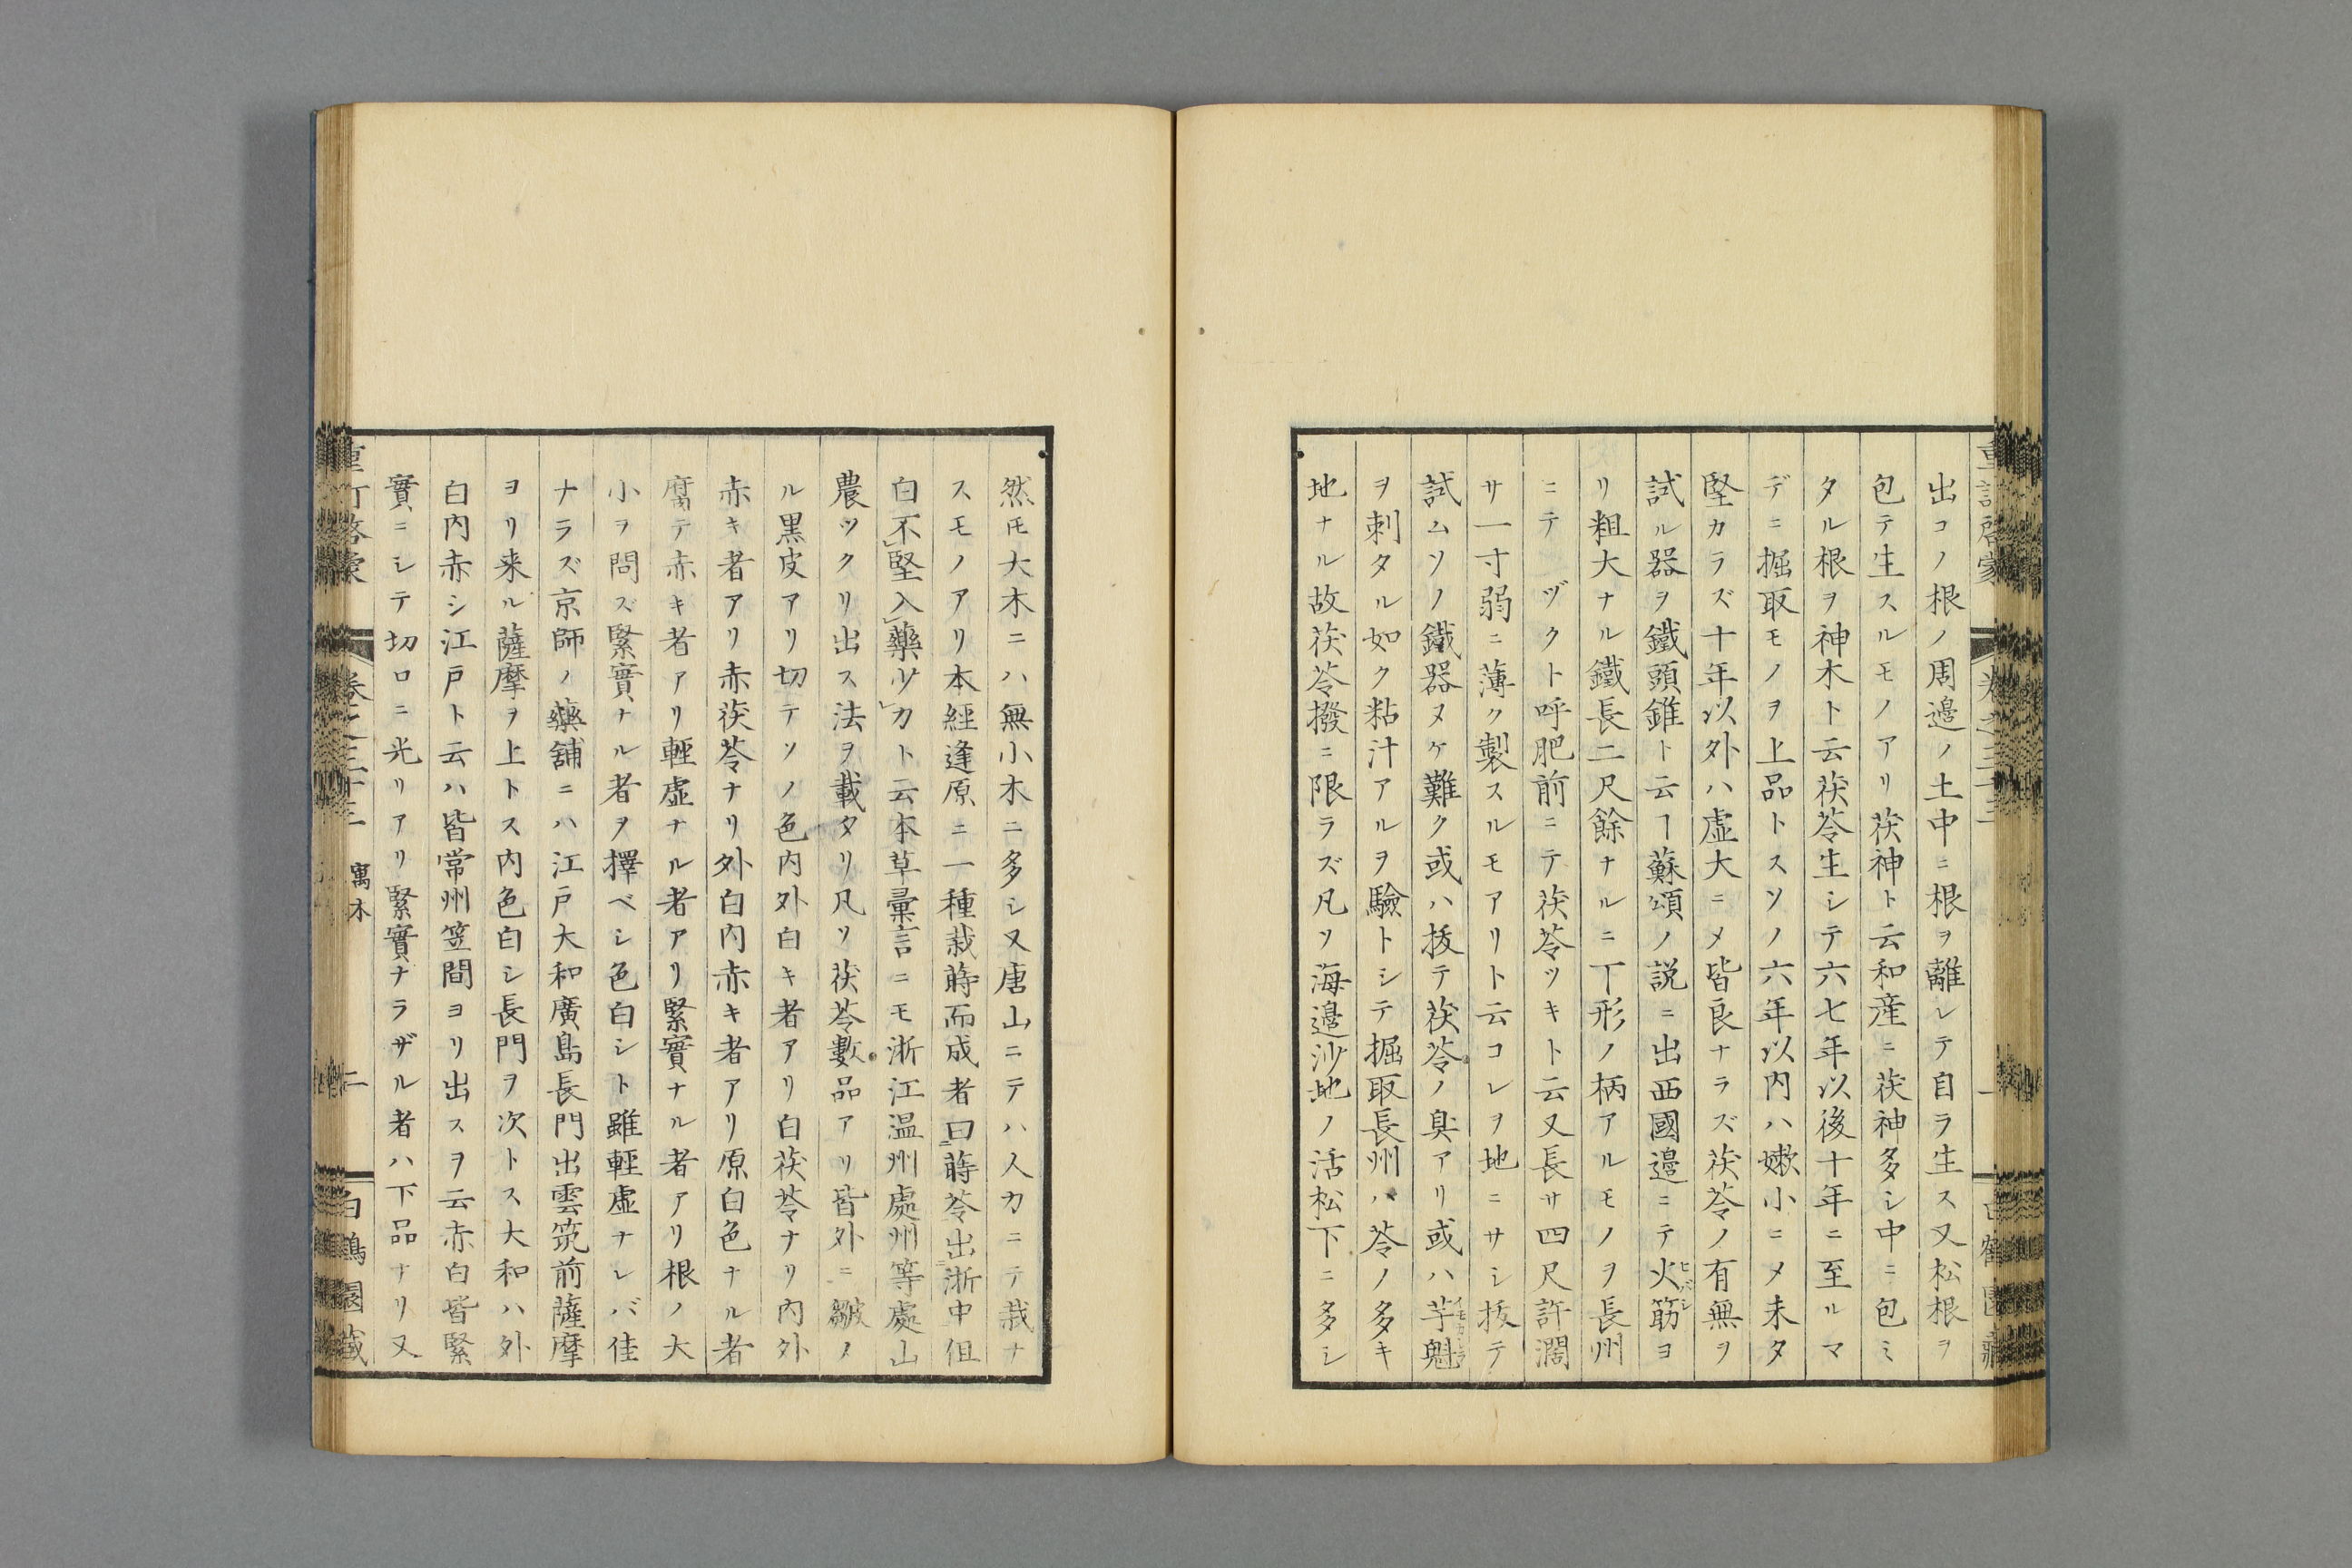 出コノ根ノ周邉ノ土中ニ根ヲ離レテ自ラ生ス又松根ヲ
包テ生スルモノアリ茯神ト云和産ニ茯神多シ中ニ包ミ
タル根ヲ神木ト云茯苓生シテ六七年以後十年ニ至ルマ
デニ掘取モノヲ上品トスソノ六年以内ハ嫩小ニメ未タ
堅カラズ十年以外ハ虚大ニメ皆良ナラズ茯苓ノ有無ヲ
試ル器ヲ鐵頭錐ト云ヿ蘇頌ノ説ニ出西國邉ニテ火筋ヨ
ヒバシ
リ粗大ナル鐵長二尺餘ナルニ丁形ノ柄アルモノヲ長州
ニテヅクト呼肥前ニテ茯苓ツキト云又長サ四尺許濶
サ一寸弱ニ薄ク製スルモアリト云コレヲ地ニサシ抜テ
試ムソノ鐵器ヌケ難ク或ハ抜テ茯苓ノ臭アリ或ハ芋魁
イモカシラ
ヲ刺タル如ク粘汁アルヲ驗トシテ掘取長州ハ苓ノ多キ
地ナル故茯苓撥ニ限ラズ凡ソ海邉沙地ノ活松下ニ多シ
然𪜈大木ニハ無小木ニ多シ又唐山ニテハ人力ニテ栽ナ
スモノアリ本經逢原ニ一種栽蒔而成者曰蒔苓出浙中但
白不堅入藥少力ト云本草彙言ニモ浙江温州處州等處山
農ツクリ出ス法ヲ載タリ凡ソ茯苓數品アリ皆外ニ皺メ
ル黒皮アリ切テソノ色内外白キ者アリ白茯苓ナリ内外
赤キ者アリ赤茯苓ナリ外白内赤キ者アリ原白色ナル者
腐テ赤キ者アリ輕虚ナル者アリ緊實ナル者アリ根ノ大
小ヲ問ズ緊實ナル者ヲ擇ベシ色白シト雖輕虚ナレバ佳
ナラズ京師ノ藥舗ニハ江戸大和廣島長門出雲筑前薩摩
ヨリ来ル薩摩ヲ上トス内色白シ長門ヲ次トス大和ハ外
白内赤シ江戸ト云ハ皆常州笠間ヨリ出スヲ云赤白皆緊
實ニシテ切口ニ光リアリ緊實ナラザル者ハ下品ナリ又
卷之三十三 寓木 二 白鶴園藏